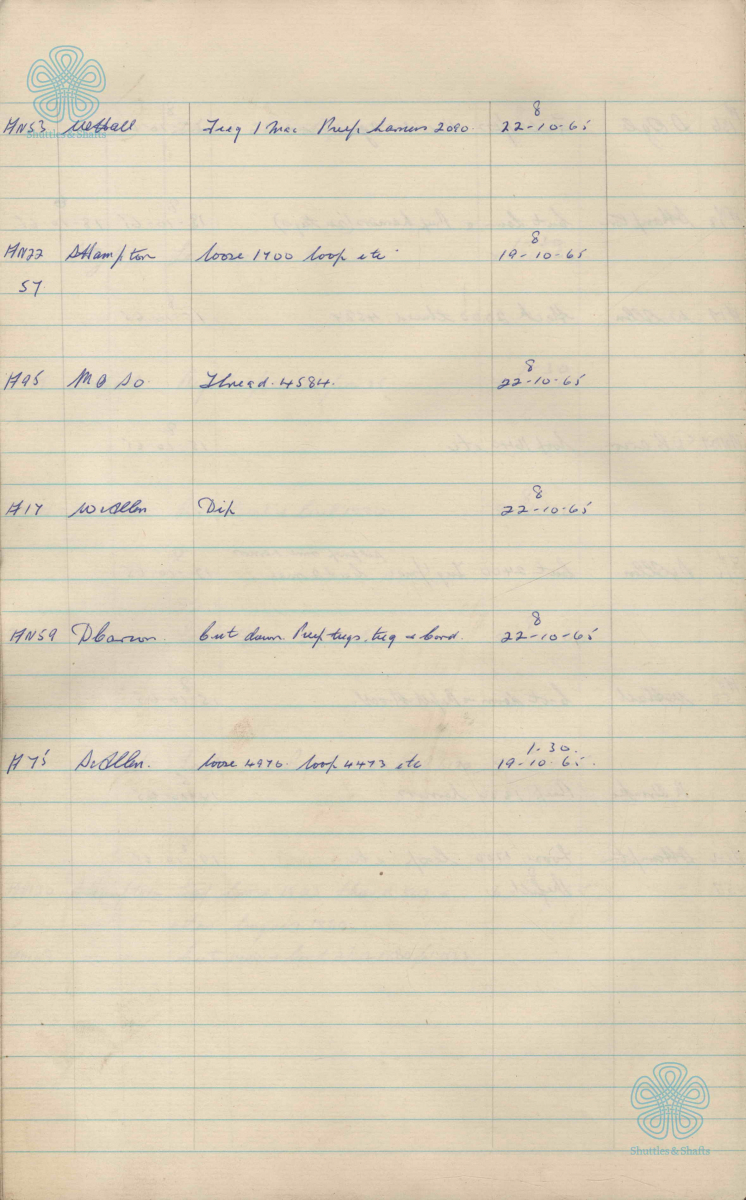 Shuttles & Shafts
HN53 Nuttall Treq 1 Mac Prep. harness 2090. 8 22-10-65
HN22 S Hampton loose 1700 loop etc 8 19-10-65
57
H95 M G So Thread. 4584. 8 22-10-65
H17 W Allen Dip 8 22-10-65
HN59 D Carson. Cut down. Prep tugs. treq & Cord. 8 22-10-65
H75 S Allen. loose 4976. loop 4473 etc 1-30. 19-10-65.
Shuttles & Shafts